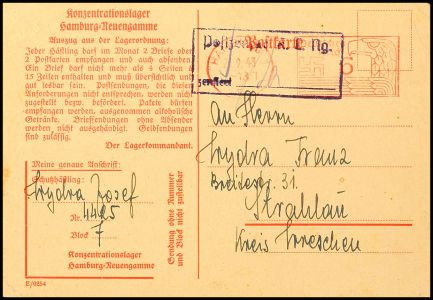 Konzentrationslager
Hamburg-Neuengamme
Auszug aus der Lagerordnung:
Jeder Häftling darf im Monat 2 Briefe oder
2 Postkarten empfangen und auch absenden
Ein Brief darf nicht mehr als 4 Seiten à
15 Zeilen enthalten und muß übersichtlich und
gut lesbar sein. Postsendungen, die diesen
Anforderungen nicht entsprechen, werden nicht
zugestellt bezw. befördert. Pakete dürfen
empfangen werden, ausgenommen alkoholische
Getränke. Briefsendungen ohne Absender
werden nicht ausgehändigt. Geldsendungen
sind zulässig.
Der Lagerkommandant.
Meine genaue Anschrift:
Schutzhäftling:
Wydra Josef
Nr. 4425
Block 7
Konzentrationslager
Hamburg-Neuengamme
E/0254
Sendung ohne Nummer
und Block nicht zustellbar
Postkarte
An Herrn
Wydra Franz
Breitestr. 31.
Strahlau
Kreis Wreschen